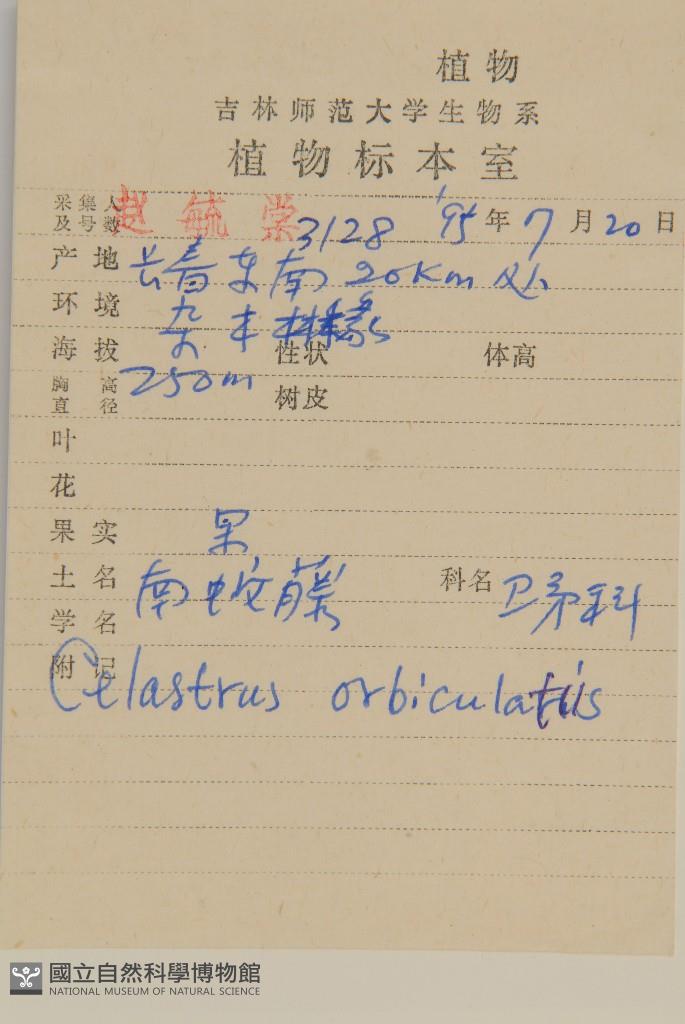 植物
吉林师范大学生物系
植物标本室
采集人及号数 赵毓棠 3128 '95年7月20日
产地 长春东南20Km处
环境 杂木林缘
海拔 250m 性状 体高
胸高直径 树皮
叶
花
果实 果
土名 南蛇藤 科名 卫矛科
学名
附记 Celastrus orbiculatus
國立自然科學博物館
NATIONAL MUSEUM OF NATURAL SCIENCE